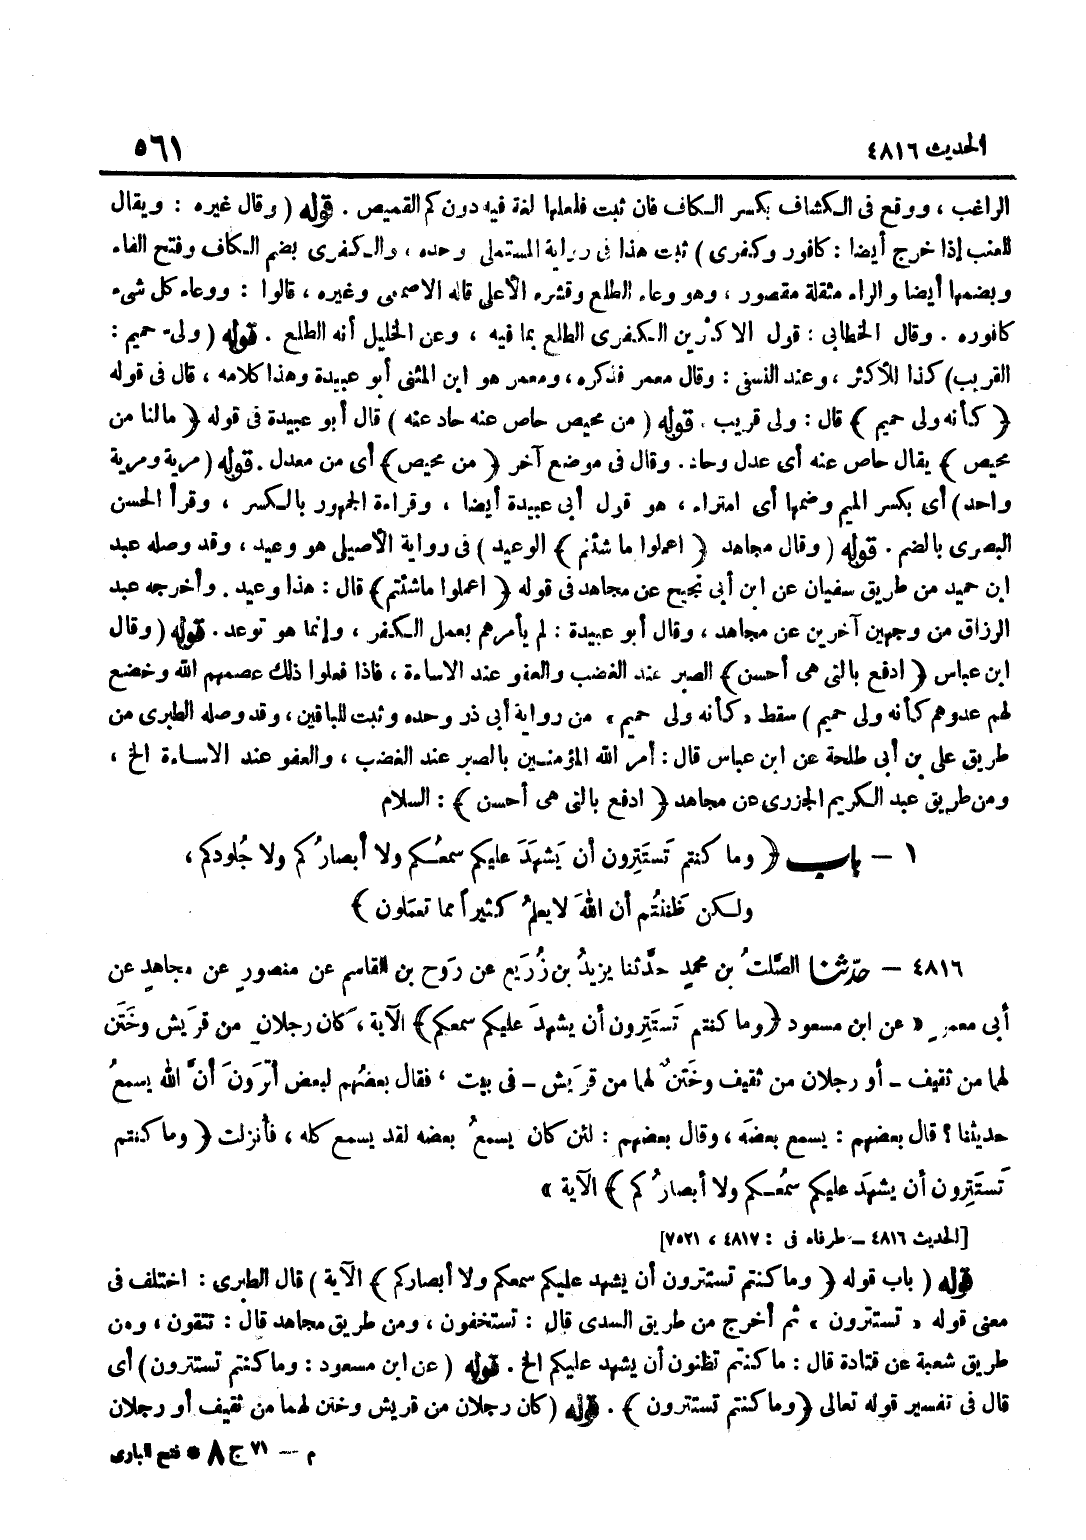 الحديث ٤٨١٦ ٥٦١
الراغب ، ووقع فى الكشاف بكسر الكاف فان ثبت فلعلها لغة فيه دون كم القميص . قوله ( وقال غيره : ويقال
للعنب إذا خرج أيضا : كافور وكفرى ) ثبت هذا فى رواية المستملى وحده ، والكفرى بضم الكاف وفتح الفاء
وبضمها أيضا والراء مثقلة مقصور ، وهو وعاء الطلع وقشره الأعلى قاله الاصمعى وغيره ، قالوا : ووعاء كل شىء
كافوره . وقال الخطابى : قول الاكثرين الكفرى الطلع بما فيه ، وعن الخليل أنه الطلع . قوله ( ولى حميم :
القريب ) كذا للأكثر ، وعند النسفى : وقال معمر فذكره ، ومعمر هو ابن المثنى أبو عبيدة وهذا كلامه ، قال فى قوله
﴿ كأنه ولى حميم ﴾ قال : ولى قريب . قوله ( من محيص حاص عنه حاد عنه ) قال أبو عبيدة فى قوله ﴿ مالنا من
محيص ﴾ يقال حاص عنه أى عدل وحاد . وقال فى موضع آخر ﴿ من محيص ﴾ أى من معدل . قوله ( مرية ومرية
واحد ) أى بكسر الميم وضمها أى امتراء ، هو قول أبى عبيدة أيضا ، وقراءة الجمهور بالكسر ، وقرأ الحسن
البصرى بالضم . قوله ( وقال مجاهد ﴿ اعملوا ما شئتم ﴾ الوعيد ) فى رواية الأصيلى هو وعيد ، وقد وصله عبد
ابن حميد من طريق سفيان عن ابن أبى نجيح عن مجاهد فى قوله ﴿ اعملوا ماشئتم ﴾ قال : هذا وعيد . وأخرجه عبد
الرزاق من وجهين آخرين عن مجاهد ، وقال أبو عبيدة : لم يأمرهم بعمل الكفر ، وإنما هو توعد . قوله ( وقال
ابن عباس ﴿ ادفع بالتى هى أحسن ﴾ الصبر عند الغضب والعفو عند الاساءة ، فاذا فعلوا ذلك عصمهم الله وخضع
لهم عدوهم كأنه ولى حميم ) سقط « كأنه ولى حميم » من رواية أبى ذر وحده وثبت للباقين ، وقد وصله الطبرى من
طريق على بن أبى طلحة عن ابن عباس قال : أمر الله المؤمنين بالصبر عند الغضب ، والعفو عند الاساءة الخ ،
ومن طريق عبد الكريم الجزرى عن مجاهد ﴿ ادفع بالتى هى أحسن ﴾ : السلام
١ - باب ﴿ وما كنتم تَستَتِرون أن يَشهَدَ عليكم سمعُكم ولا أبصارُكم ولا جُلودكم ،
ولكن ظَننتُم أن اللهَ لا يعلمُ كثيراً مما تعمَلون ﴾
٤٨١٦ - حدّثنا الصَّلتُ بن محمدٍ حدَّثنا يزيدُ بن زُرَيع عن رَوح بن القاسم عن منصورٍ عن مجاهدٍ عن
أبى معمرٍ « عن ابن مسعود ﴿ وما كنتم تَستَتِرون أن يشهدَ عليكم سمعكم ﴾ الآية ، كان رجلانِ من قرَيش وخَتَن
لهما من ثقيف - أو رجلان من ثقيف وخَتَنٌ لهما من قرَيش - فى بيت ، فقال بعضُهم لبعض أتُرَونَ أنَّ الله يسمعُ
حديثنا ؟ قال بعضهم : يسمع بعضَه ، وقال بعضهم : لئن كان يسمعُ بعضه لقد يسمع كله ، فأُنزلت ﴿ وما كنتم
تَستَتِرون أن يشهدَ عليكم سمُعكم ولا أبصارُكم ﴾ الآية »
[الحديث ٤٨١٦ - طرفاه فى : ٤٨١٧ ، ٧٥٢١]
قوله ( باب قوله ﴿ وما كنتم تستترون أن يشهد عليكم سمعكم ولا أبصاركم ﴾ الآية ) قال الطبرى : اختلف فى
معنى قوله « تستترون » ثم أخرج من طريق السدى قال : تستخفون ، ومن طريق مجاهد قال : تتقون ، ومن
طريق شعبة عن قتادة قال : ما كنتم تظنون أن يشهد عليكم الخ . قوله ( عن ابن مسعود : وما كنتم تستترون ) أى
قال فى تفسير قوله تعالى ﴿ وما كنتم تستترون ﴾ . قوله ( كان رجلان من قريش وختن لهما من ثقيف أو رجلان
م - ٧١ ج ٨ * فتح البارى